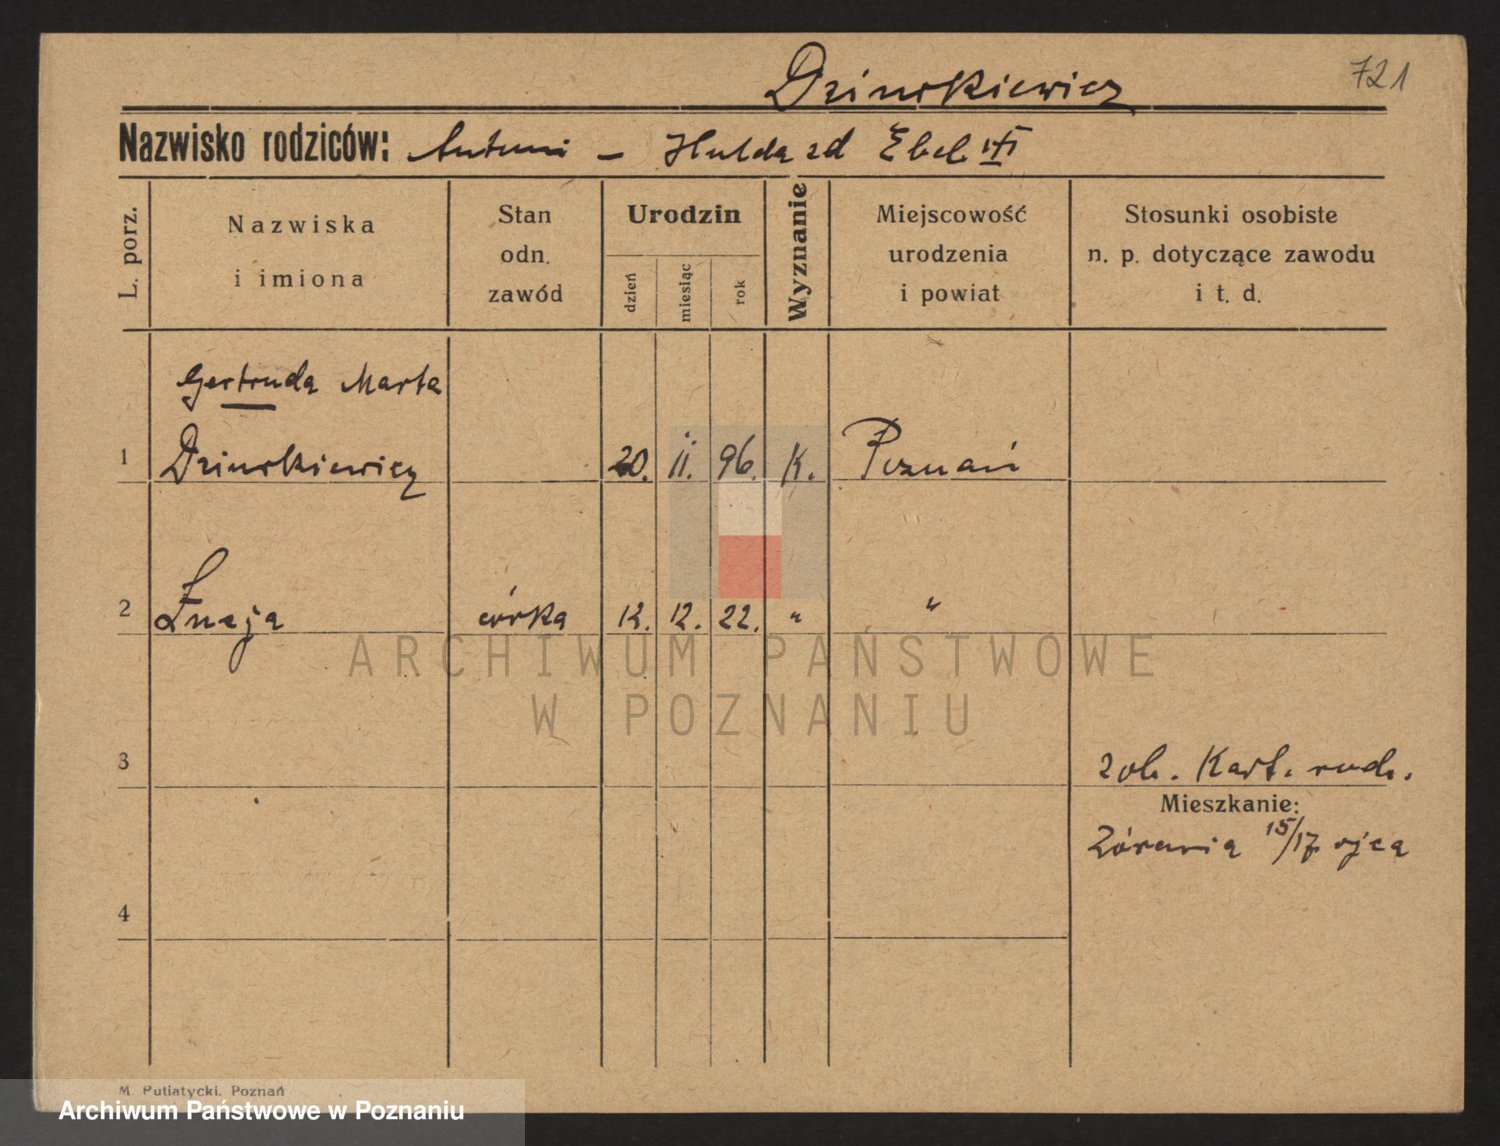 721
Dziurkiewicz
Nazwisko rodziców: Antoni – Hulda zd Ebel
L. porz.
Nazwiska
i imiona
Stan
odn.
zawód
Urodzin
dzień
miesiąc
rok
Wyznanie
Miejscowość
urodzenia
i powiat
Stosunki osobiste
n. p. dotyczące zawodu
i t. d.
Gertruda Marta
1 Dziurkiewicz 20. II. 96. K. Poznań
2 Łucja córka 12. 22. " "
ARCHIWUM PAŃSTWOWE
W POZNANIU
3
zob. Kart. rodz.
Mieszkanie:
Żórawia 15/17 ojca
4
M. Putiatycki, Poznań
Archiwum Państwowe w Poznaniu